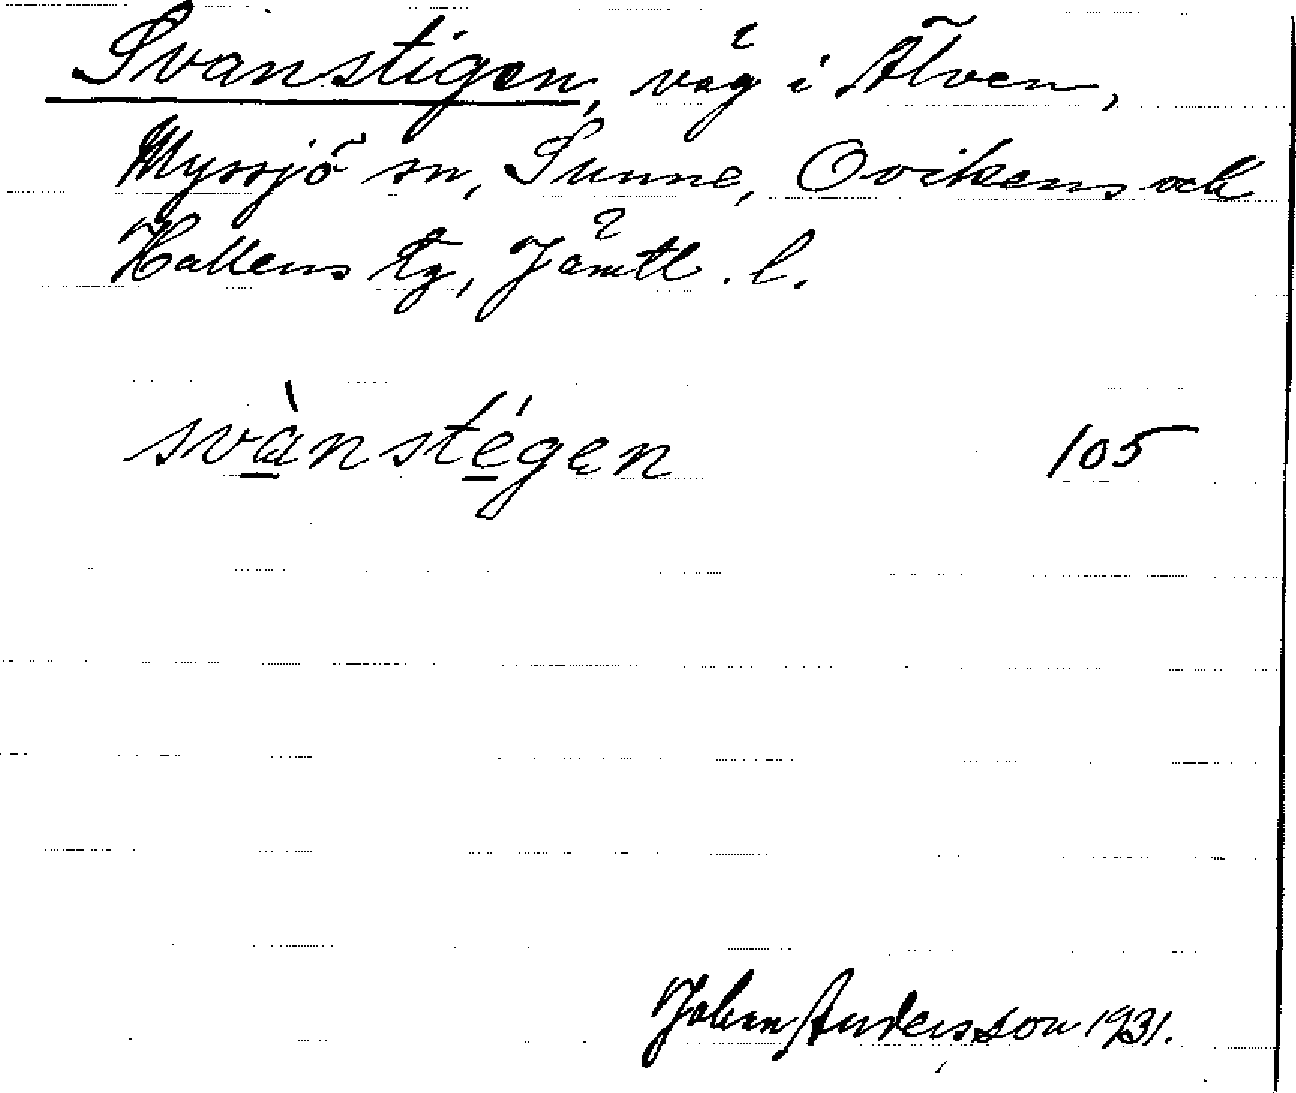 Svanstigen, väg i Älven,
Myssjö sn, Sunne, Ovikens och
Hallens tg, Jämtl. l.
svànstégen 105
Johan Andersson 1931.